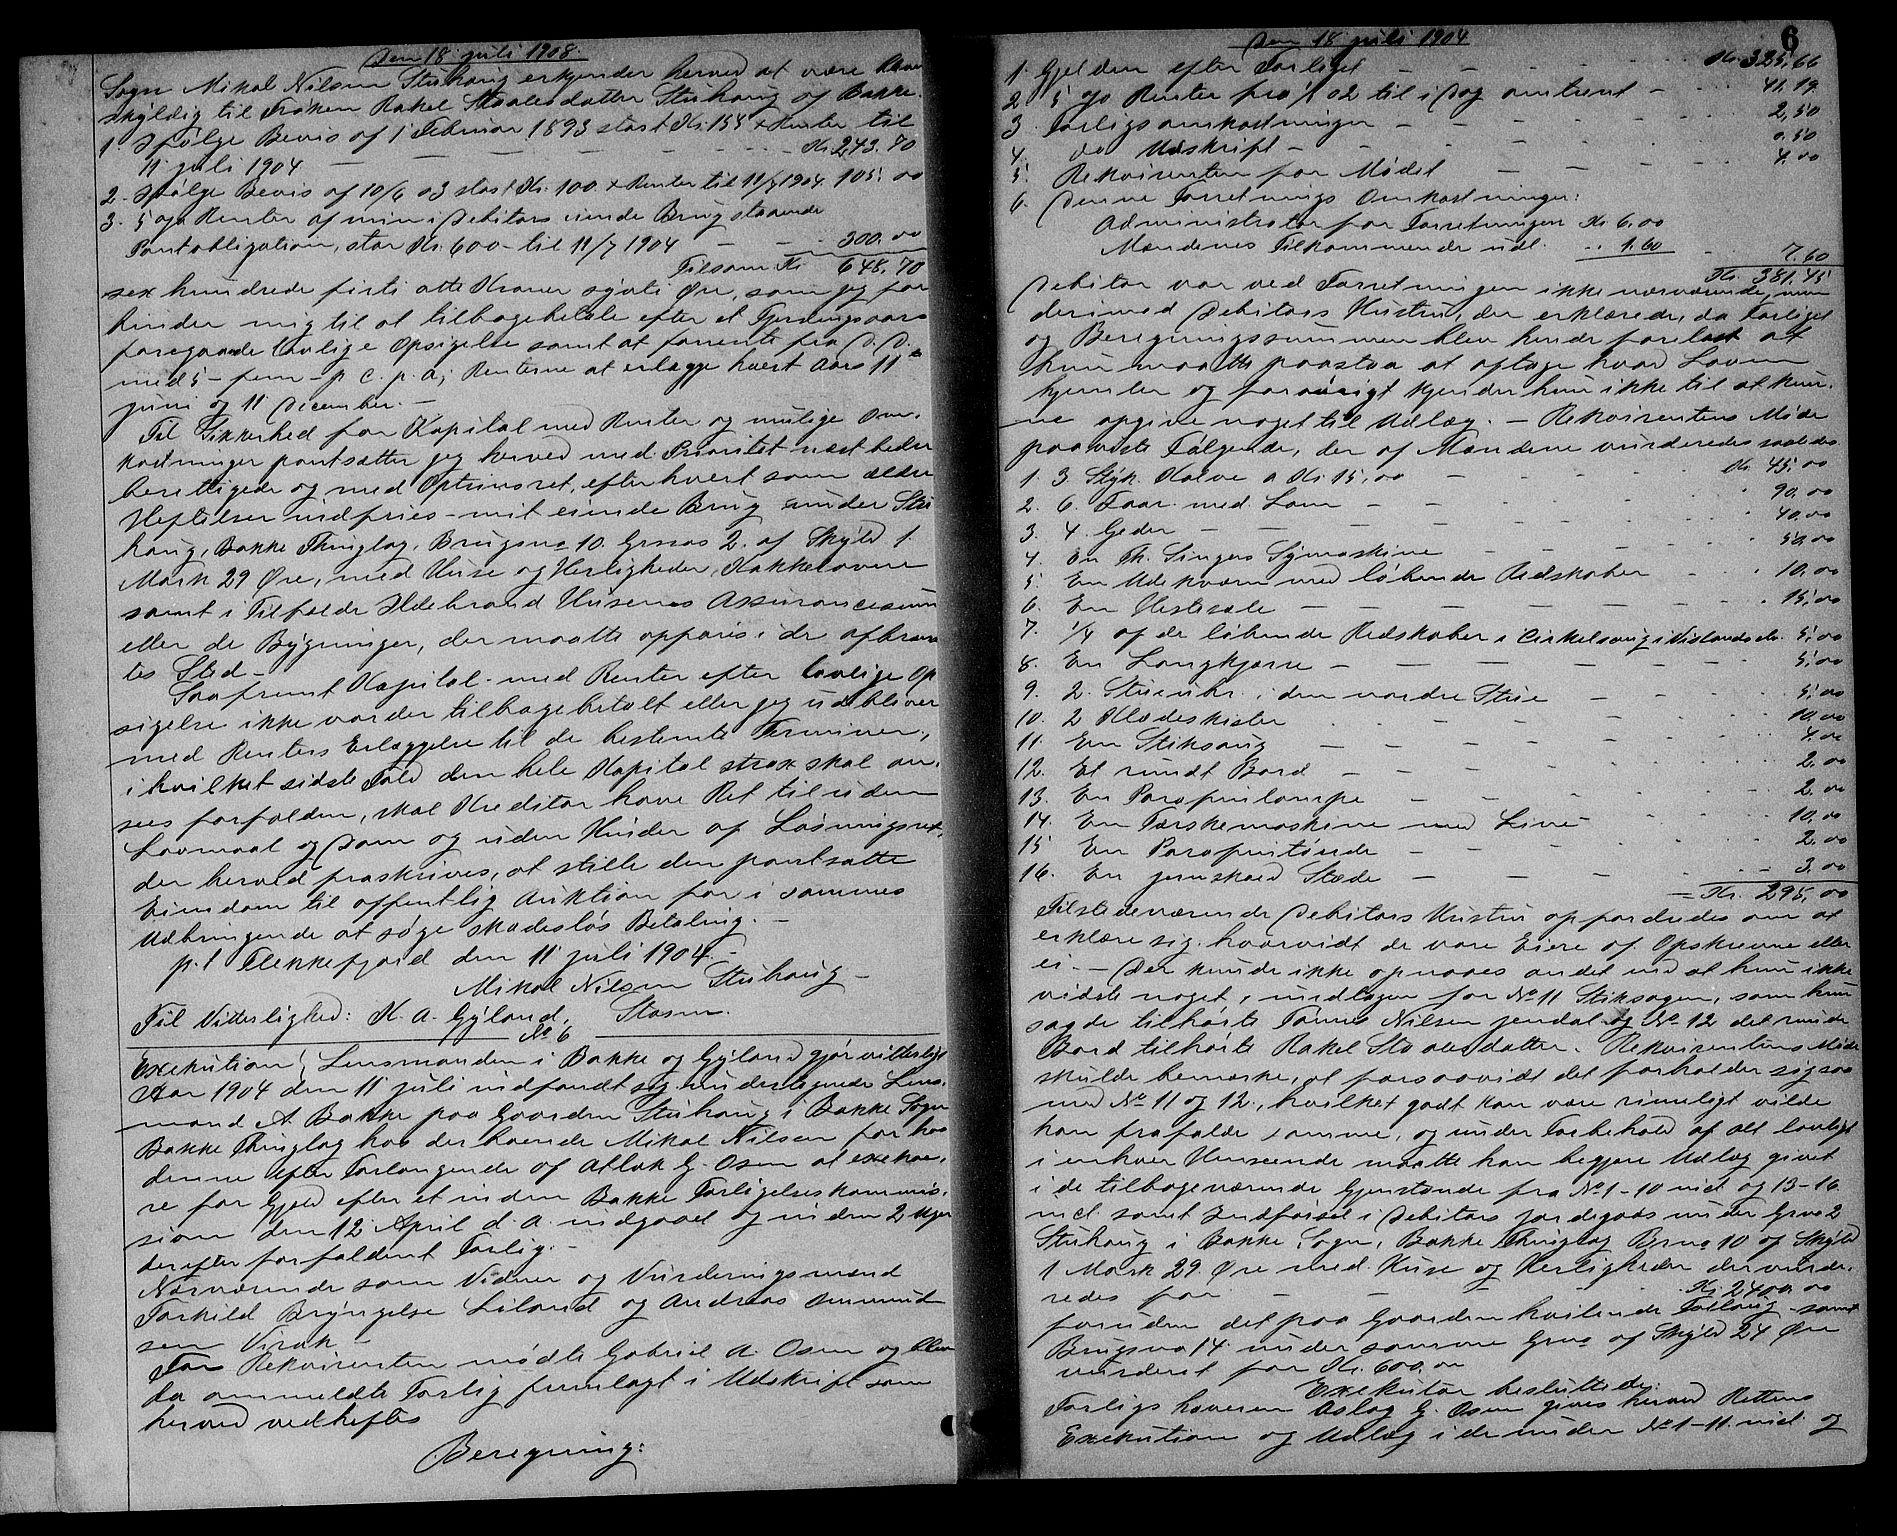 Den 18 juli 1908.
Søgn Mikal Nilsen Stuhaug erkjender herved at være
skyldig til Frøken Rakel Staalesdatter Stuhaug af Bakke.
1. Ifølge Bevis af 1 Februar 1893 stort Kr. 155 + Renter til
11 juli 1904 — — — — — Kr. 243.70
2. Ifølge Bevis af 10/6 03 stort Kr. 100 + Renter til 11/7 1904. 105.00
3. 5 o/o Renter af min i Debitors eiende Brug staaende
Pantobligation, stor Kr. 600 - til 11/7 1904 — — 300.00
Tilsam. Kr. 648.70
sex hundrede firti otte Kroner sytti Øre, som jeg for
binder mig til at tilbagebetale efter et Fjerdingaars
foregaaende lovlige Opsigelse samt at forrente fra D.D.
med 5 - fem - p c. p. a; Renterne at erlægge hvert Aars 11te
juni og 11 December. —
Til Sikkerhed for Kapital med Renter og mulige Om-
kostninger pantsætter jeg herved med Prioritet næst bedre
berettigede og med Optrinsret, efterhvert som ældre
Heftelser udfries - mit eiende Brug under Stu
haug, Bakke Thinglag, Brugsno 10. Grsno 2. af Skyld 1
Mark 29 Øre, med Huse og Herligheder, Kakkelovne
samt i Tilfælde Ildebrand Husenes Assurancesum
eller de Bygninger, der maatte opføres i de afbrænd
tes Sted. -
Saafremt Kapital med Renter efter lovlige Op
sigelse ikke vorder tilbagebetalt eller jeg udebliver
med Renters Erlæggelse til de bestemte Terminer,
i hvilket sidste Fald den hele Kapital strax skal an-
sees forfalden, skal Kreditor have Ret til uden
Lovmaal og Dom og uden Hinder af Løsningsret,
der herved fraskrives, at stille den pantsatte
Eiendom til offentlig Auktion for i sammes
Udbringende at søge skadesløs Betaling. —
p.t Flekkefjord den 11 juli 1904. —
Mikal Nilsen Stuhaug —
Til Vitterlighed: K. A. Gyland, Stasm.
No 6
Exekution: Lensmanden i Bakke og Gyland gjør vitterligt
Aar 1904 den 11 juli indfandt sig undertegnede Lens-
mand A. Bakke paa Gaarden Stuhaug i Bakke Sogn
Bakke Thinglag hos der boende Mikal Nilsen for hos
denne efter Forlangende af Atlak G. Osen at exekve-
re for Gjæld efter et inden Bakke Forligelseskommis-
sion den 12 April d. a. indgaaet og inden 2 Uger
derefter forfaldent Forlig. —
Nærværende som Vidner og Vurderingsmænd
Torkild Bryngelsen Liland og Andreas Ommund
sen Virak —
For Rekvirenten mødte Gabriel A. Osen og blev
da ommeldte Forlig fremlagt i Udskrift som
herved vedheftes
Beregning:
Den 18 juli 1904
6
1. Gjelden efter Forliget — — — — Kr. 325,66
2 5 o/o Renter fra 02 til i Dag omtrent — 41.19
3 Forligsomkostninger — — — — 2,50
4. do Udskrift — — — 0.50
5. Rekvirenten for Mødet — — 4.00
6. Denne Forretnings Omkostninger:
Administrator for Forretningen Kr. 6.00
Mændenes Tilkommende udl. .. 1.60 — 7.60
Kr. 381.45
Debitor var ved Forretningen ikke nærværende, men
derimod Debitors Hustru, der erklærede, da Forliget
og Beregningssummen blev hende forelæst at
hun maatte paastaa at aftage hvad Loven
hjemler og forøvrigt kjender hun ikke til at kun-
ne opgive noget til Udlæg. — Rekvirentens Møde
paaviste Følgende, der af Mændene vurderedes saaledes
1. 3 Styk Kalve a Kr. 15,00 — Kr. 45.00
2. 6 Faar med Lam — — 90.00
3. 4. Geder — — — 40.00
4. En Th. Singers Symaskine — 50.00
5. En Udekværn med løbende Redskaber — 10.00
6. En Hestesele — — — 15,00
7. 1/4 af de løbende Redskaber i Cirkelsaug i 5,00
8. En Langkjærre — — — 5,00
9. 2 Stueuhr i den nordre Stue — 5,00
10. 2 Klædeskister — 10.00
11. En Stiksaug — — — 4.00
12. Et rundt Bord — — 2.00
13. En Parafinlampe — — 2.00
14. En Tærskemaskine med Line — 10,00
15 En Parafintønde — — 2.00
16. En jernskoed Slæde — — — 3.00
— Kr. 295,00
Tilstedeværende Debitors Hustru opfordredes om at
erklære sig hvorvidt de vare Eiere af Opskrevne eller
ei. — Der kunde ikke opnaaes andet end at hun ikke
vidste noget, undtagen for No 11 Stiksagen, som hun
sagde tilhørte Tønnes Nilsen Jendal og No 12 det runde
Bord tilhørte Rakel Staalesdatter. Rekvirentens Møde
skulde bemærke, at forsaavidt det forholder sig saa
med No 11 og 12, hvilket godt kan være rimeligt vilde
han frafalde samme, og under Forbehold af alt lovligt
i enhver Henseende maatte han begjære Udlæg givet
i de tilbageværende Gjenstande fra No 1-10 incl og 13-16
incl. samt Indførsel i Debitors jordegods under Grno 2
Stuhaug i Bakke Sogn, Bakke Thinglag Brno 10 af Skyld
1 Mark 29 Øre med Huse og Herligheder der vurde-
redes for — — — — Kr. 2400.00
foruden det paa Gaarden hvilende Follaug - samt
Brugsno 14 under samme Grno af Skyld 24 Øre
vurderet for Kr. 600,00
Exekutor besluttede:
Forligshaveren Aslag G. Osen gives herved Rettens
Exekution og Udlæg i de under No 1-11 incl. og